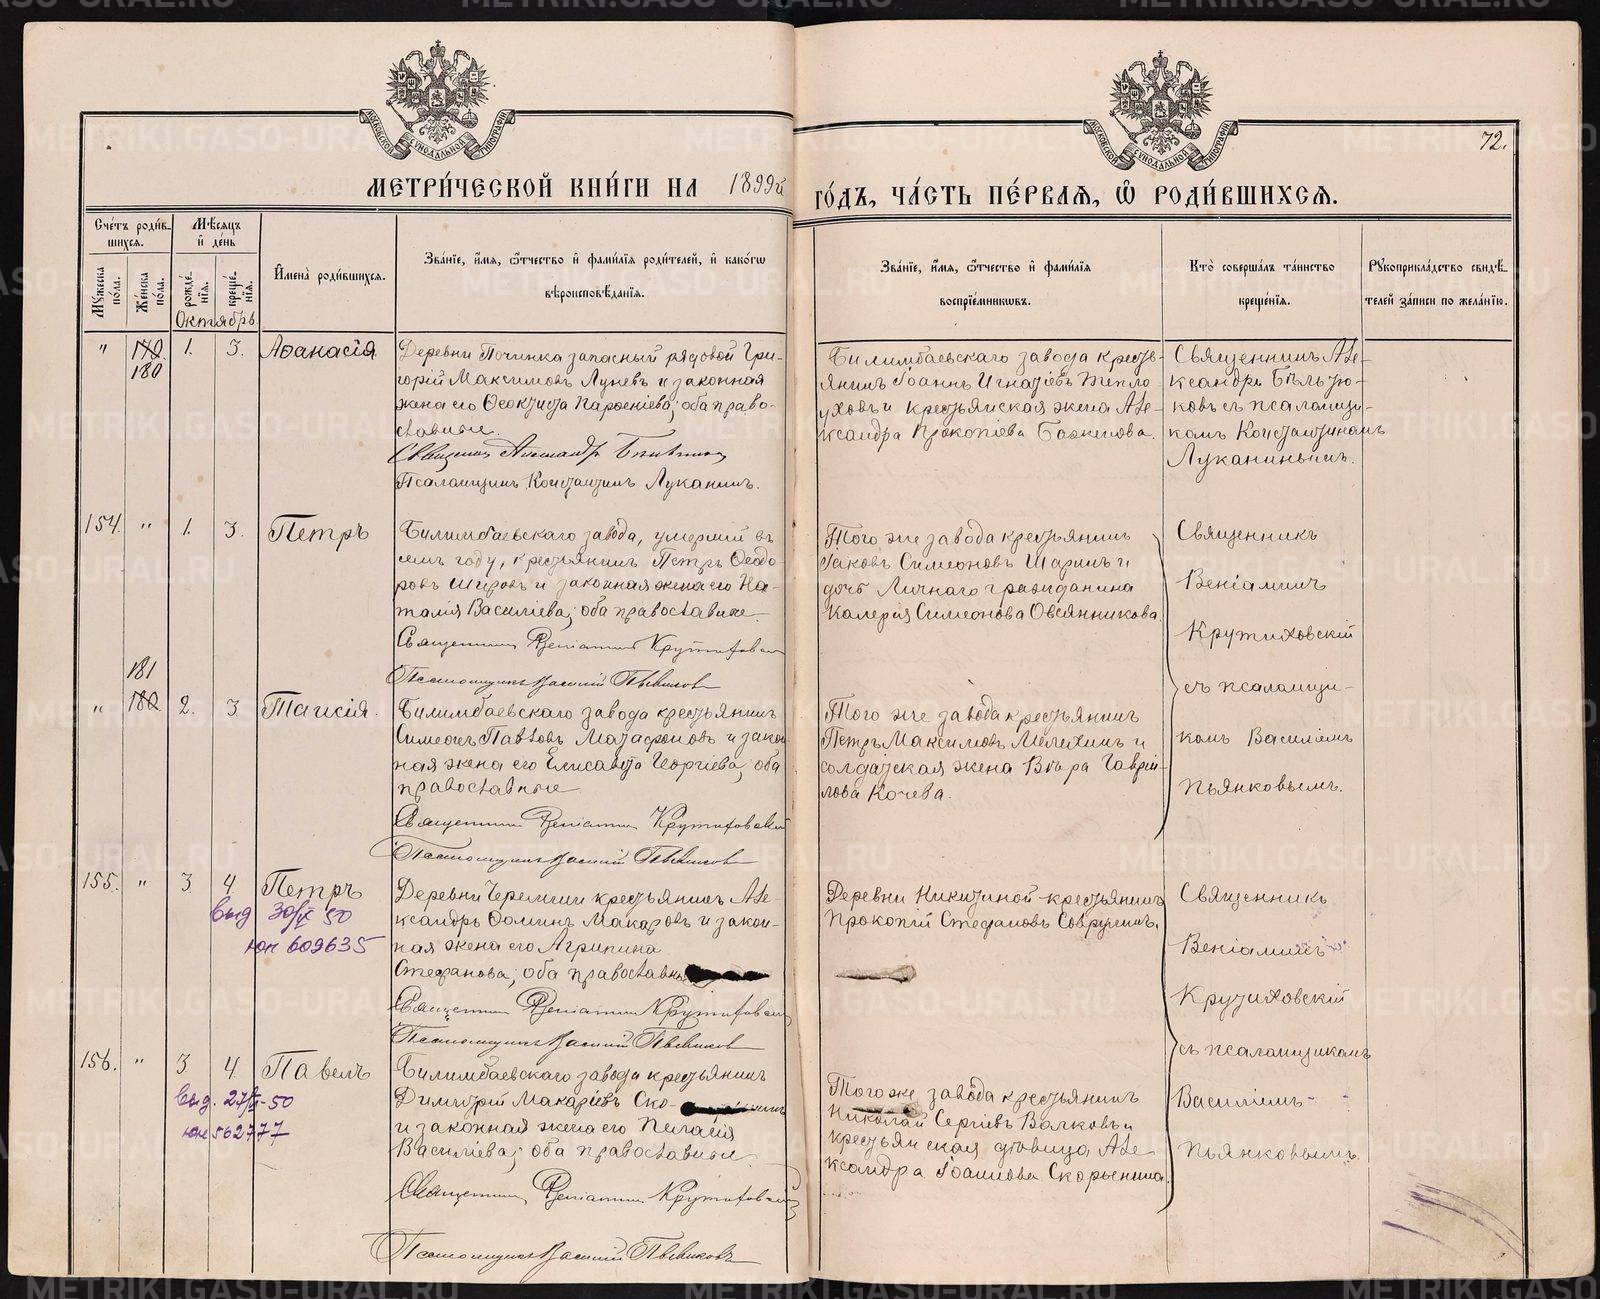 МЕТРИ́ЧЕСКОЙ КНИ́ГИ НА 1899й
ГО́ДЪ, ЧА́СТЬ ПЕ́РВАЯ, Ѡ҆ РОДИ́ВШИХСЯ.
72.
Сче́тъ роди́в-
шихся.
Мꙋ́жеска по́ла.
Же́нска по́ла.
Мѣ́сяцъ
и҆ де́нь
рожде́-
нїя.
креще́-
нїя.
Октябрь.
И҆мена̀ роди́вшихся.
Зва́нїе, и҆́мя, ѻ҆́тчество и҆ фами́лїя роди́телей, и҆ како́гѡ
вѣроисповѣ́данїя.
Зва́нїе, и҆́мя, ѻ҆́тчество и҆ фами́лїя
воспрїе́мникѡвъ.
Кто̀ соверша́лъ та́инство
креще́нїя.
Рꙋкоприкла́дство свидѣ́-
телей за́писи по жела́нїю.
" 179. 1. 3. Аѳанасія
180
Деревни Починка запасный рядовой Гри-
горій Максимовъ Луневъ и законная
жена его Ѳеоктиста Парѳеніева; оба право-
славные.
Священникъ Александръ
Псаломщикъ Константинъ Луканинъ.
Билимбаевскаго завода кресть-
янинъ Іоаннъ Игнатіевъ Тепло-
уховъ и крестьянская жена Але-
ксандра Прокопіева Баженова.
Священникъ Але-
ксандръ Бѣльтю-
ковъ съ псаломщи-
комъ Константиномъ
Луканинымъ.
154. " 1. 3. Петръ
Билимбаевскаго завода, умершій въ
семъ году, крестьянинъ Петръ Ѳеодо-
ровъ Шировъ и законная жена его На-
талія Василіева; оба православные.
Священникъ Веніаминъ Крутиховскій
Псаломщикъ Василій Пьянковъ
Того же завода крестьянинъ
Іаковъ Симеоновъ Шаринъ и
дочь Личнаго гражданина
Калерія Симеонова Овсянникова.
Священникъ
Веніаминъ
Крутиховскій
съ псаломщи-
комъ Василіемъ
Пьянковымъ.
181
" 180. 2. 3. Таисія.
Билимбаевскаго завода крестьянинъ
Симеонъ Павловъ Матафоновъ и закон-
ная жена его Елисавета Георгіева; оба
православные
Священникъ Веніаминъ Крутиховскій
Псаломщикъ Василій Пьянковъ
Того же завода крестьянинъ
Петръ Максимовъ Мелехинъ и
солдатская жена Вѣра Гаврі-
лова Кочева.
155. " 3 4 Петръ
выд 30/IX 50
юп 609635
Деревни Черемши крестьянинъ Але-
ксандръ Ѳоминъ Макаровъ и закон-
ная жена его Агрипина
Стефанова; оба православн
Священникъ Веніаминъ Крутиховскій
Псаломщикъ Василій Пьянковъ
Деревни Никитиной крестьянинъ
Прокопій Стефановъ Совруминъ.
Священникъ
Веніаминъ
Крутиховскій
съ псаломщикомъ
Василіемъ
Пьянковымъ.
156. " 3 4 Павелъ
выд. 27/ -50
юп 562777
Билимбаевскаго завода крестьянинъ
Димитрій Макаріевъ Ско-
и законная жена его Пелагія
Василіева; оба православные
Священникъ Веніаминъ Крутиховскій
Псаломщикъ Василій Пьянковъ
Того же завода крестьянинъ
Николай Сергіевъ Волковъ и
крестьянская дѣвица Але-
ксандра Іоаннова Скорынина.
METRIKI.GASO-URAL.RU